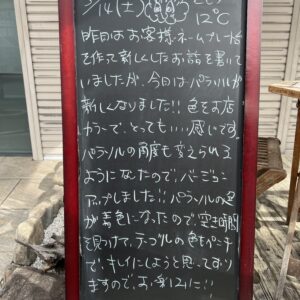 3/14(土) 12℃
昨日はお客様ネームプレート台
を作って新しくしたお話を書いて
いましたが、今日はパラソルが
新しくなりました!! 色もお店
カラーで、とってもいい感じです。
パラソルの角度も変えられる
ようになったので、バージョン
アップしました!! パラソルの色
が茶色になったので、空き時間
を見つけて、テーブルの色もペンキ
で、キレイにしようと思っており
ますので、お楽しみに!!